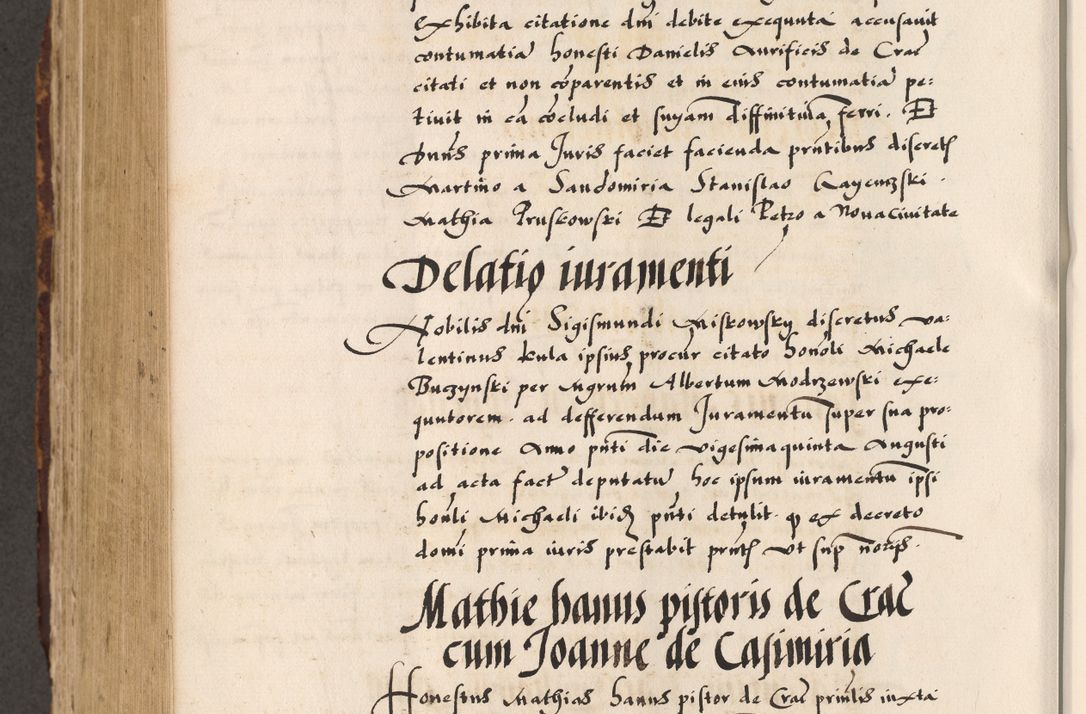 Exhibita citatione dni debite exequuta accusavit
contumatia honesti Danielis Aurificis de Crac
citati et non coparentis et in eius contumatia pe:
tivit in ea cocludi et suyam diffinitiva ferri. Et
Duus prima Juris faciet facienda pntibus discretis
Martino a Sandomiria Stanislao Gayewski.
Mathia Pruskowski Et legali Petro a Nova Civitate
Delatio iuramenti
Nobilis dni Sigismundi Miskowsky discretus va:
lentinus kula ipsius procur citato honoli Michaele
Buczynski per Mgrum Albertum Modrzewski exe:
quutorem. ad defferendum Juramentu super sua pro:
positione Anno pnti die vigesima quinta Augusti
ad acta fact deputatu hoc ipsum iuramentu ipsi
honli Michaeli ibid pnti detulit. q ex decreto
domi prima iuris prestabit pntib ut sup noris.
Mathie hanus pistoris de Crac
cum Joanne de Casimiria
Honestus Mathias hanus pistor de Crac prinlis iuxta